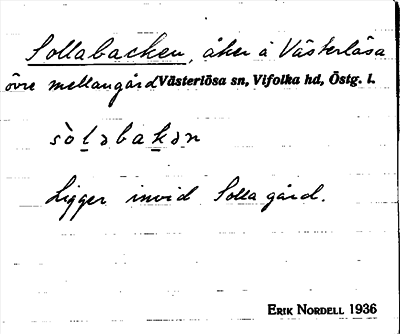 Sollabacken, åker å Västerlösa
övre mellangård Västerlösa sn, Vifolka hd, Östg. l.
sòl̲əbak̲ən
Ligger invid Solla gård.
ERIK NORDELL 1936